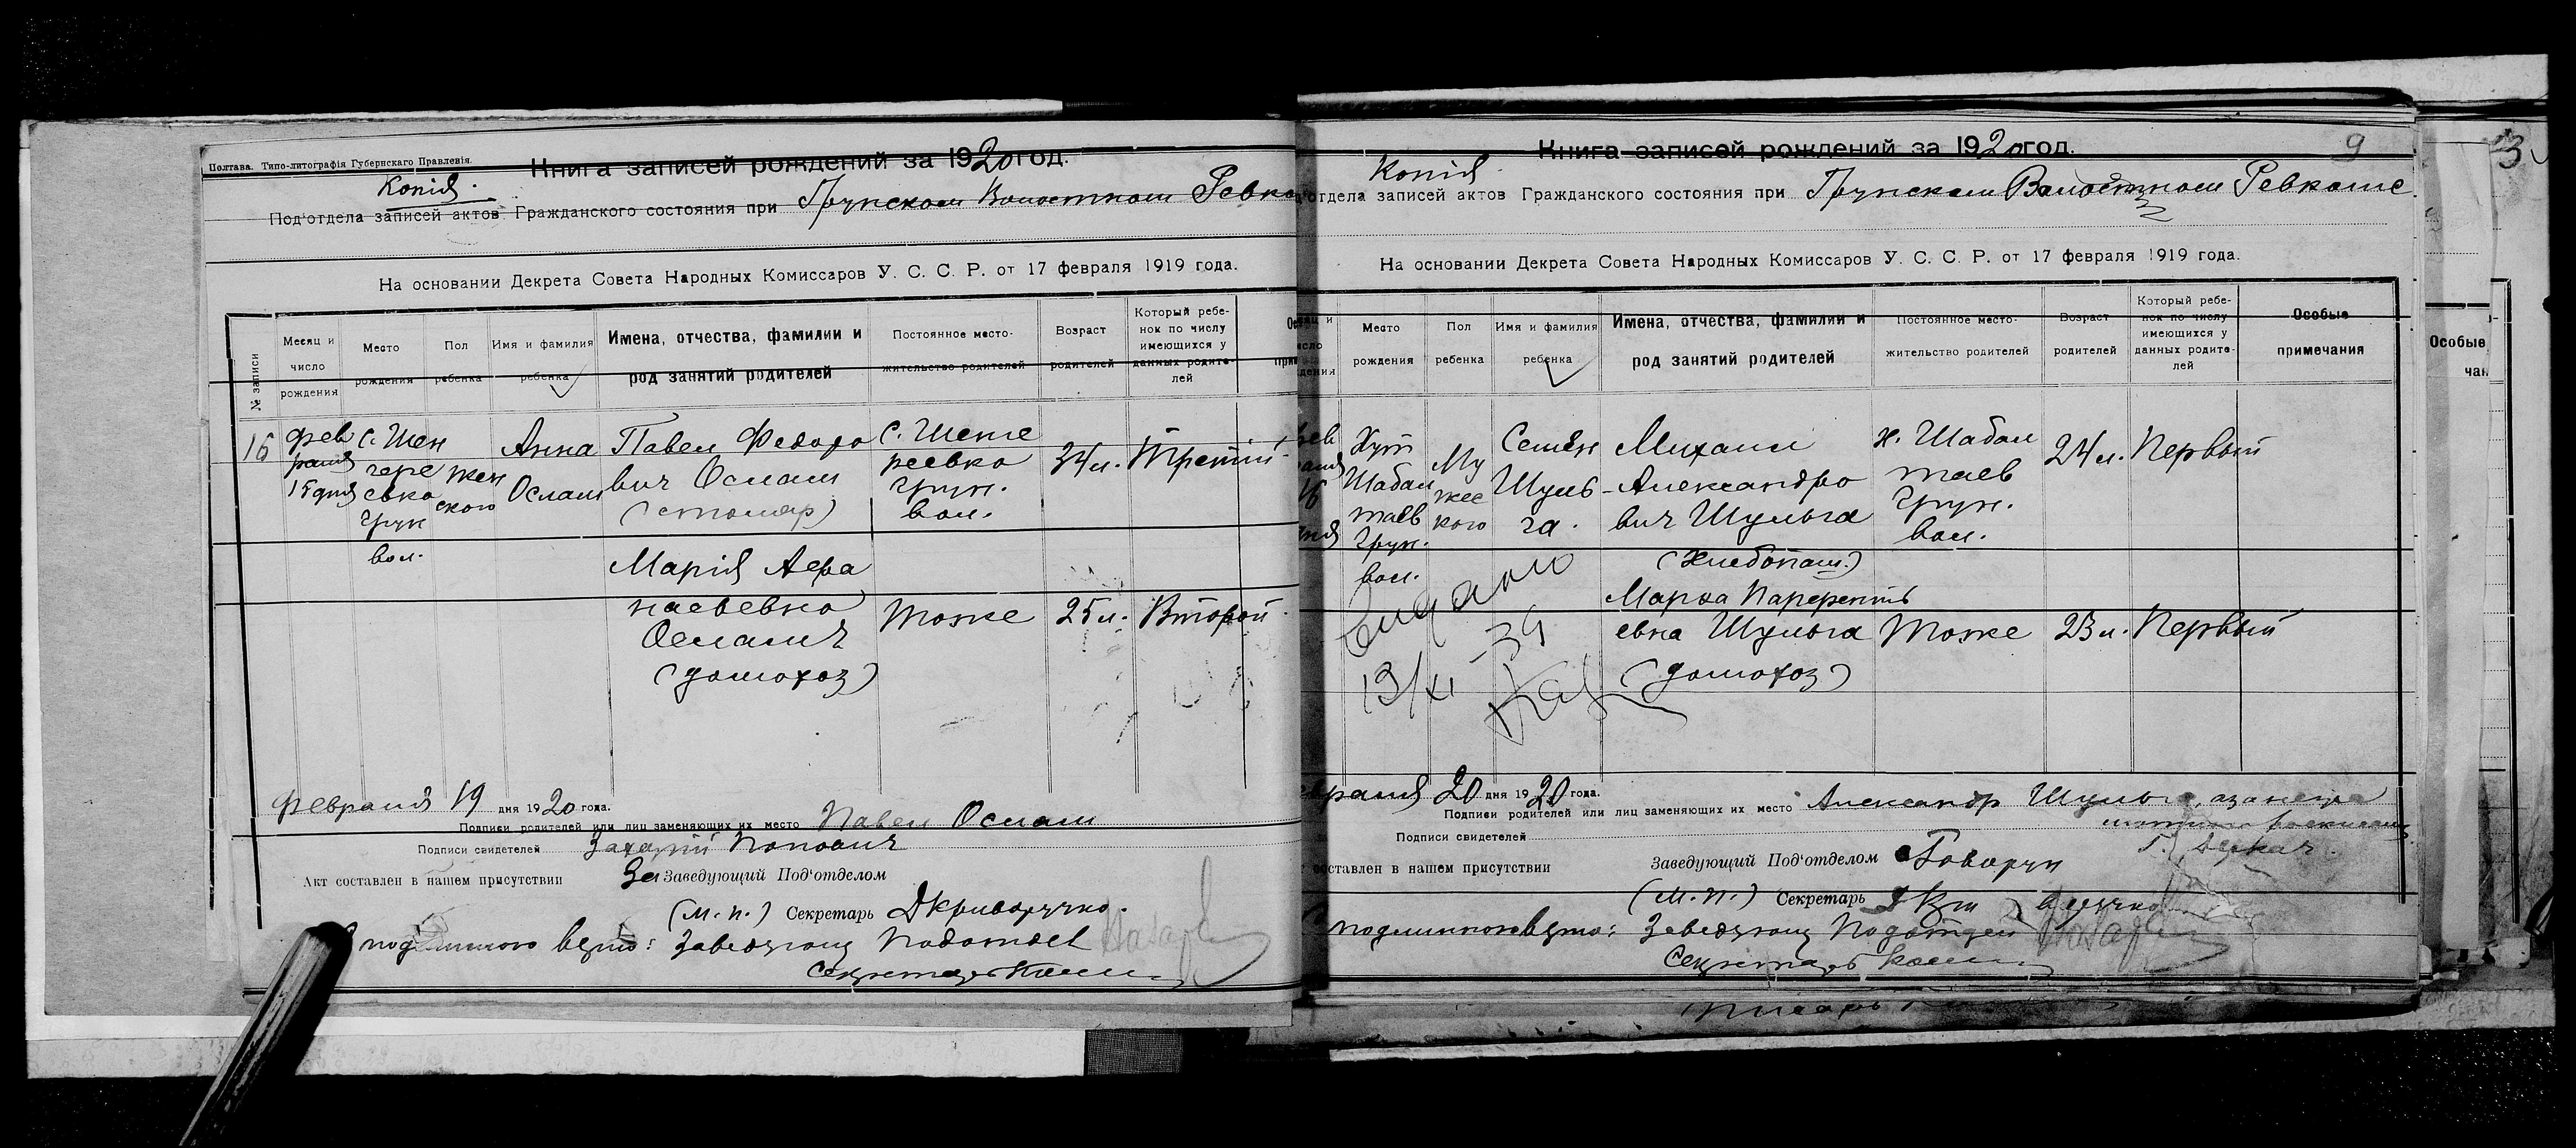 Полтава. Типо-литографія Губернскаго Правленія.
Книга записей рождений за 1920 год.
Копія.
Под'отдела записей актов Гражданского состояния при Грунском Волостном Ревко
На основании Декрета Совета Народных Комиссаров У. С. С. Р. от 17 февраля 1919 года.
№ записи
Месяц и число рождения
Место рождения
Пол ребенка
Имя и фамилия ребенка
Имена, отчества, фамилии и род занятий родителей
Постоянное место-жительство родителей
Возраст родителей
Который ребе-нок по числу имеющихся у данных родите-лей
16
фев
раля
15 дня
с. Шен
гере
евка
грун
вол.
жен
ского
Анна
Ослам
Павел Федоро
вич Ослам
(столяр)
с. Шенге
реевка
грун.
вол.
34 л.
Третій
Марія Афа
насьевна
Осламъ
(домохоз)
Тоже
25 л.
Второй
Февраля 19 дня 1920 года.
Подписи родителей или лиц заменяющих их место Павел Ослам
Подписи свидетелей Захарій
Акт составлен в нашем присутствии За Заведующий Под'отделом
(М. п.) Секретарь Д Криворучко.
верно: Заведующ Подотдел
Секретарь
9
Книга записей рождений за 1920 год.
Копія
отдела записей актов Гражданского состояния при Грунском Волостном Ревкоме
На основании Декрета Совета Народных Комиссаров У. С. С. Р. от 17 февраля 1919 года.
Место рождения
Пол ребенка
Имя и фамилия ребенка
Имена, отчества, фамилии и род занятий родителей
Постоянное место-жительство родителей
Возраст родителей
Который ребе-нок по числу имеющихся у данных родите-лей
Особые примечания
Хут
Шабал
таев
грун.
вол.
Му
жес
кого
Семен
Шуль-
га.
Михаил
Александро
вич Шульга
(хлебопаш.)
х. Шабал
таев
грун.
вол.
24 л.
Первый
Марфа
евна Шульга
(домохоз)
Тоже
23 л.
Первый
видано
13/XI-39
враля 20 дня 1920 года.
Подписи родителей или лиц заменяющих их место Александр Шульга, а за него
Подписи свидетелей
Г. Деркач
ставлен в нашем присутствии
Заведующий Под'отделом Говорун
(М. п.) Секретарь
подлинным верно: Заведующ Подотдел
Секретарь
Особые